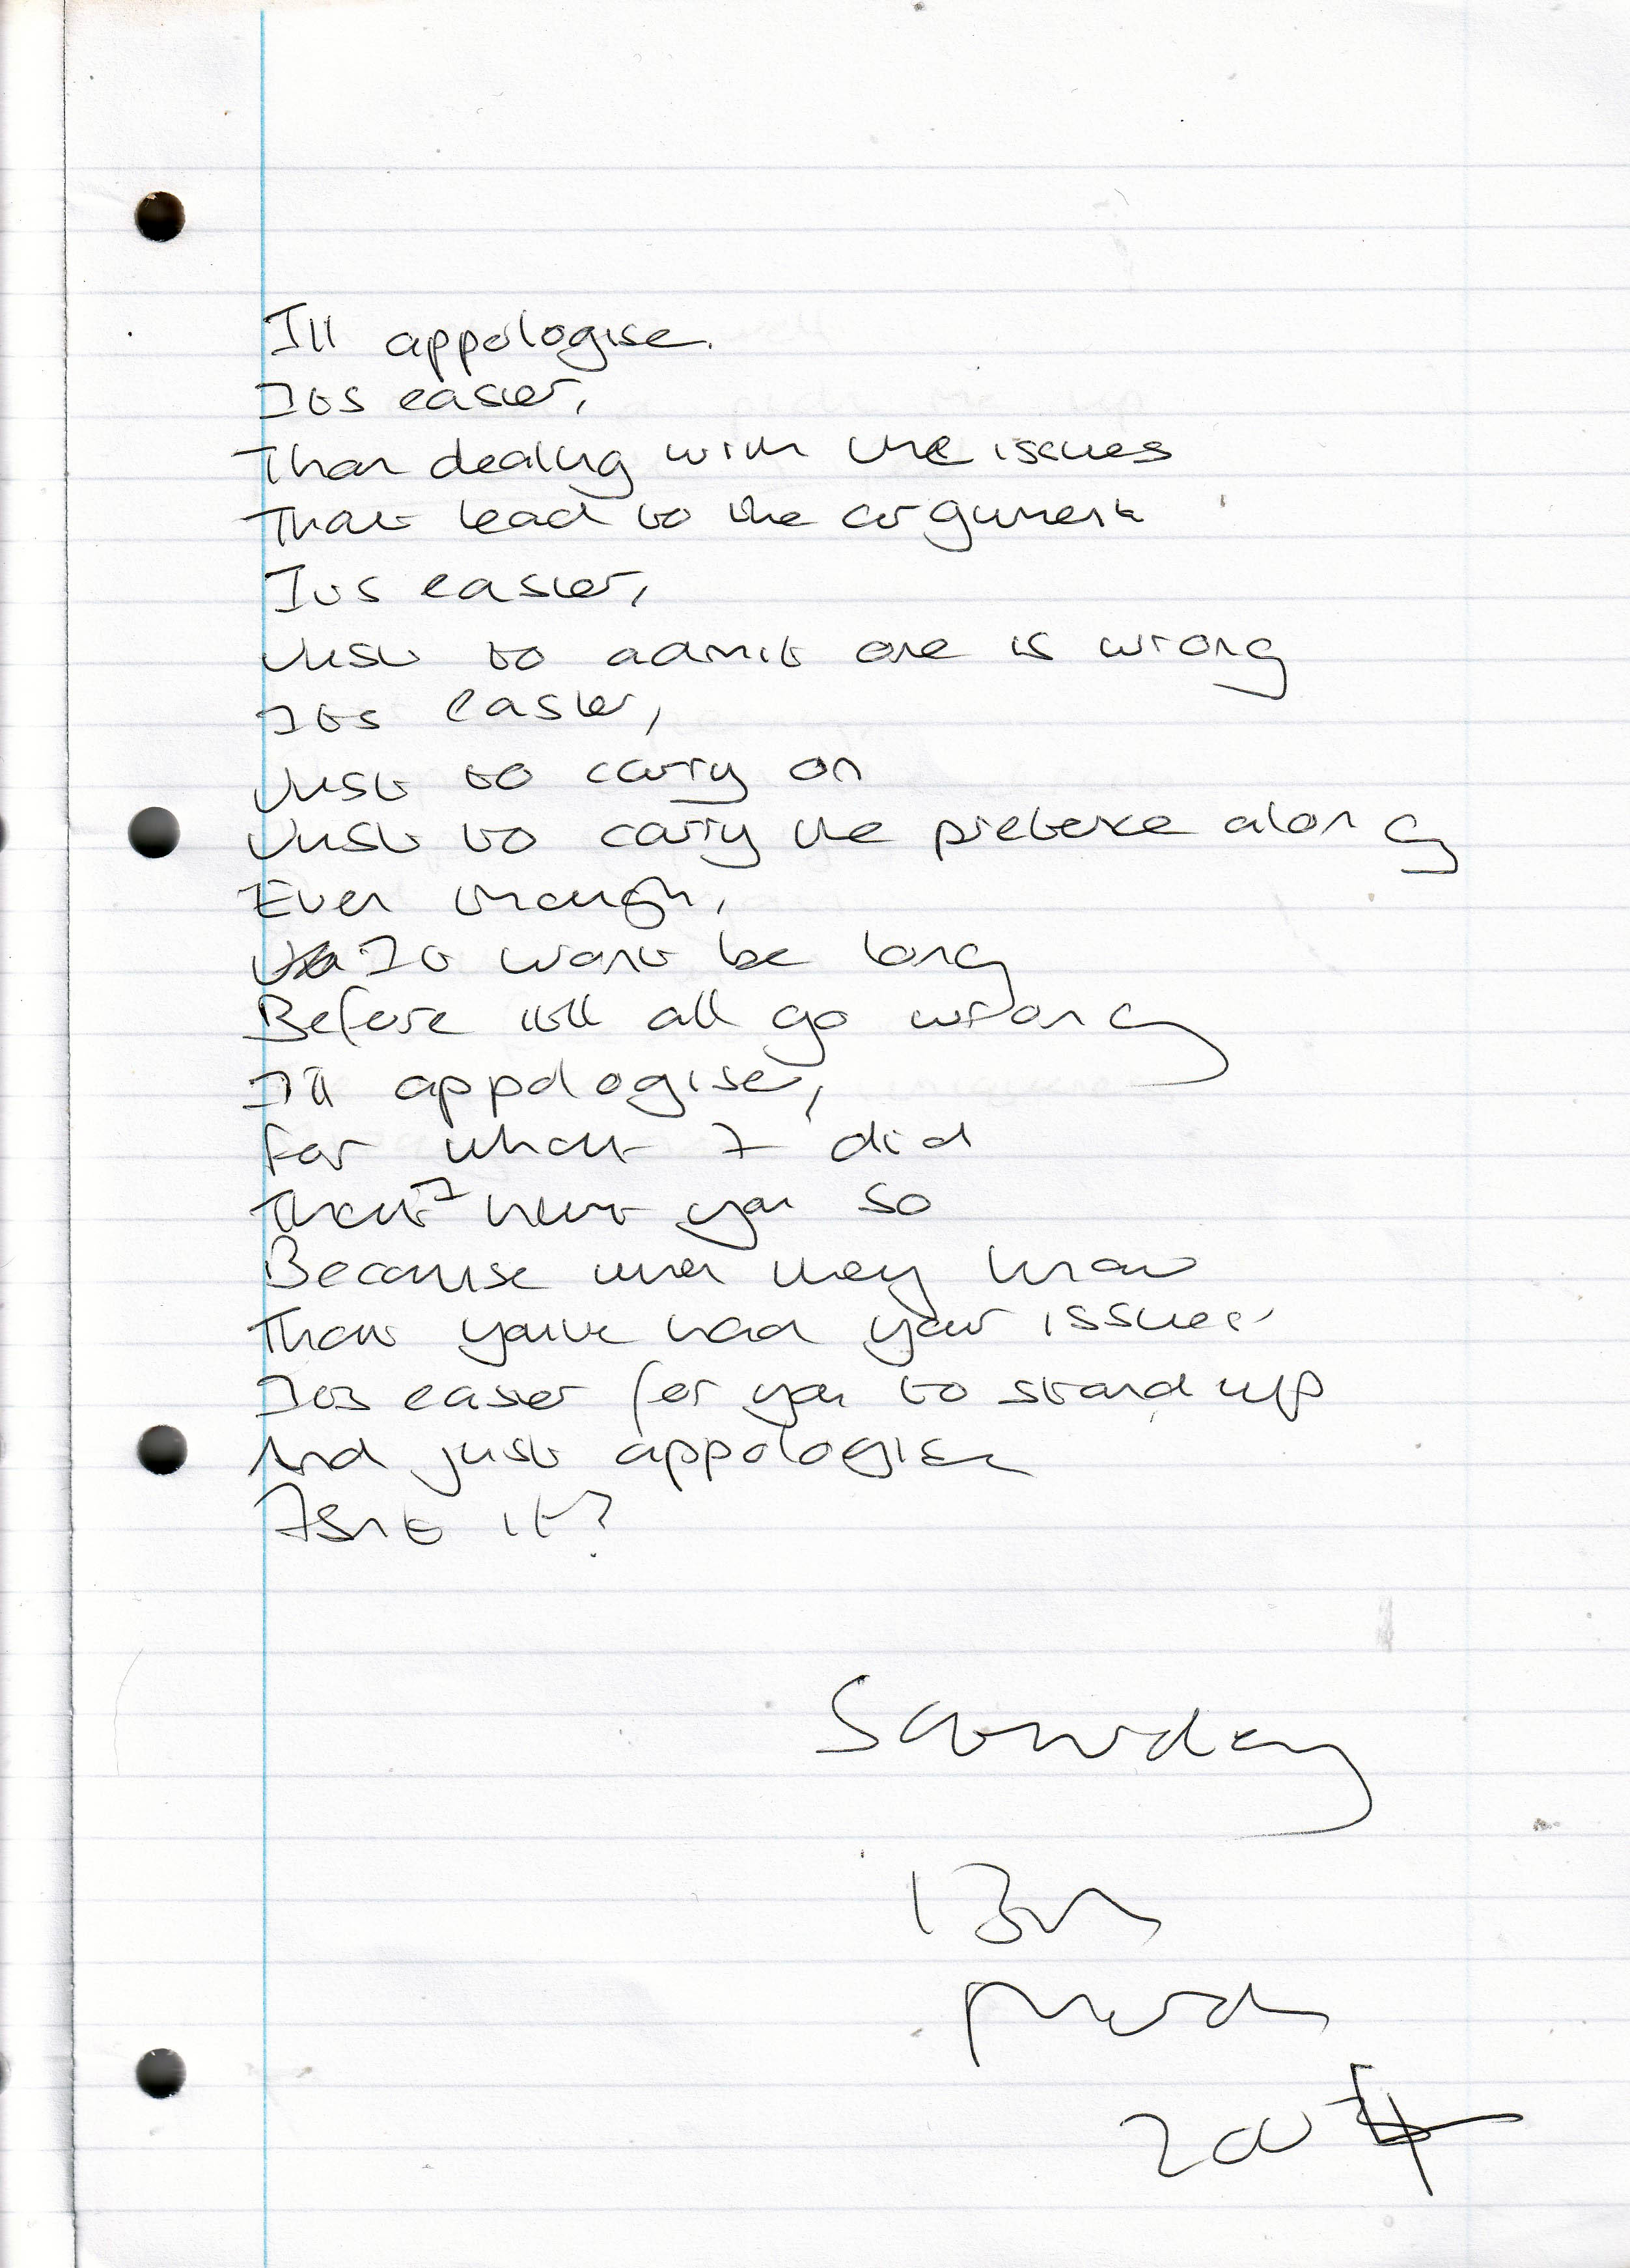 Ill appologise.
Its easier,
Than dealing with the issues
That lead to the argument
Its easier,
Just to admit one is wrong
Its easier,
Just to carry on
Just to carry the pretence along
Even though,
It wont be long
Before itll all go wrong
Ill appologise,
For what I did
That hurt you so
Because when they know
That youve had your issues
Its easier for you to stand up
And just appologise
Isnt it?
Saturday
13th
March
2004